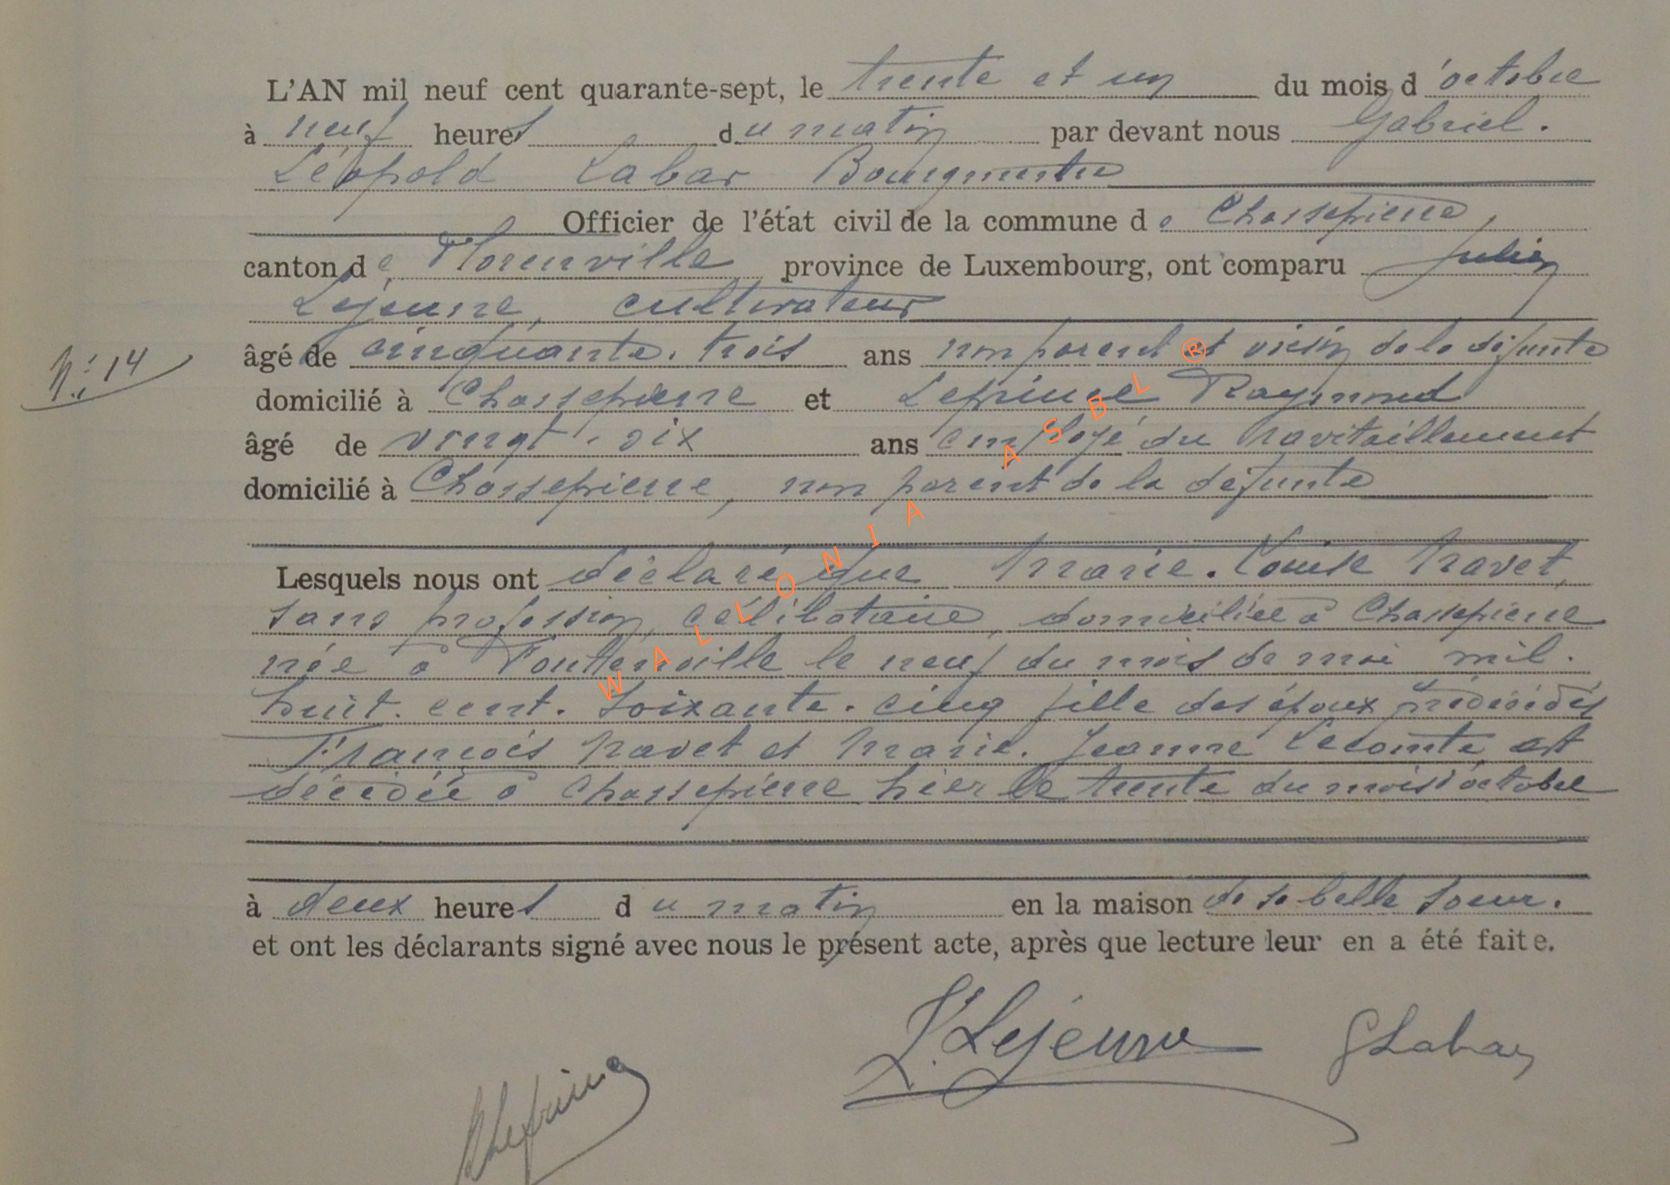 L'AN mil neuf cent quarante-sept, le trente et un du mois d'octobre
à neuf heures du matin par devant nous Gabriel.
Léopold Labar Bourgmestre
Officier de l'état civil de la commune de Chassepierre,
canton de Florenville province de Luxembourg, ont comparu Julien
Lejeune, cultivateur
N: 14
âgé de cinquante. trois ans non parent et voisin de la défunte
domicilié à Chassepierre et Leprince Raymond
âgé de vingt-six ans employé du Ravitaillement
domicilié à Chassepierre, non parent de la défunte
Lesquels nous ont déclaré que Marie. Louise Navet,
sans profession, célibataire, domiciliée à Chassepierre
née à Fontenoille le neuf du mois de mai mil.
huit. cent. soixante. cinq fille des époux prédécédés
François Navet et Marie. Jeanne Lecomte est
décédée à Chassepierre hier le trente du mois d'octobre
à deux heures du matin en la maison de sa belle soeur.
et ont les déclarants signé avec nous le présent acte, après que lecture leur en a été faite.
J. Lejeune GLabar
RLeprince
WALLONIA ASBL ®